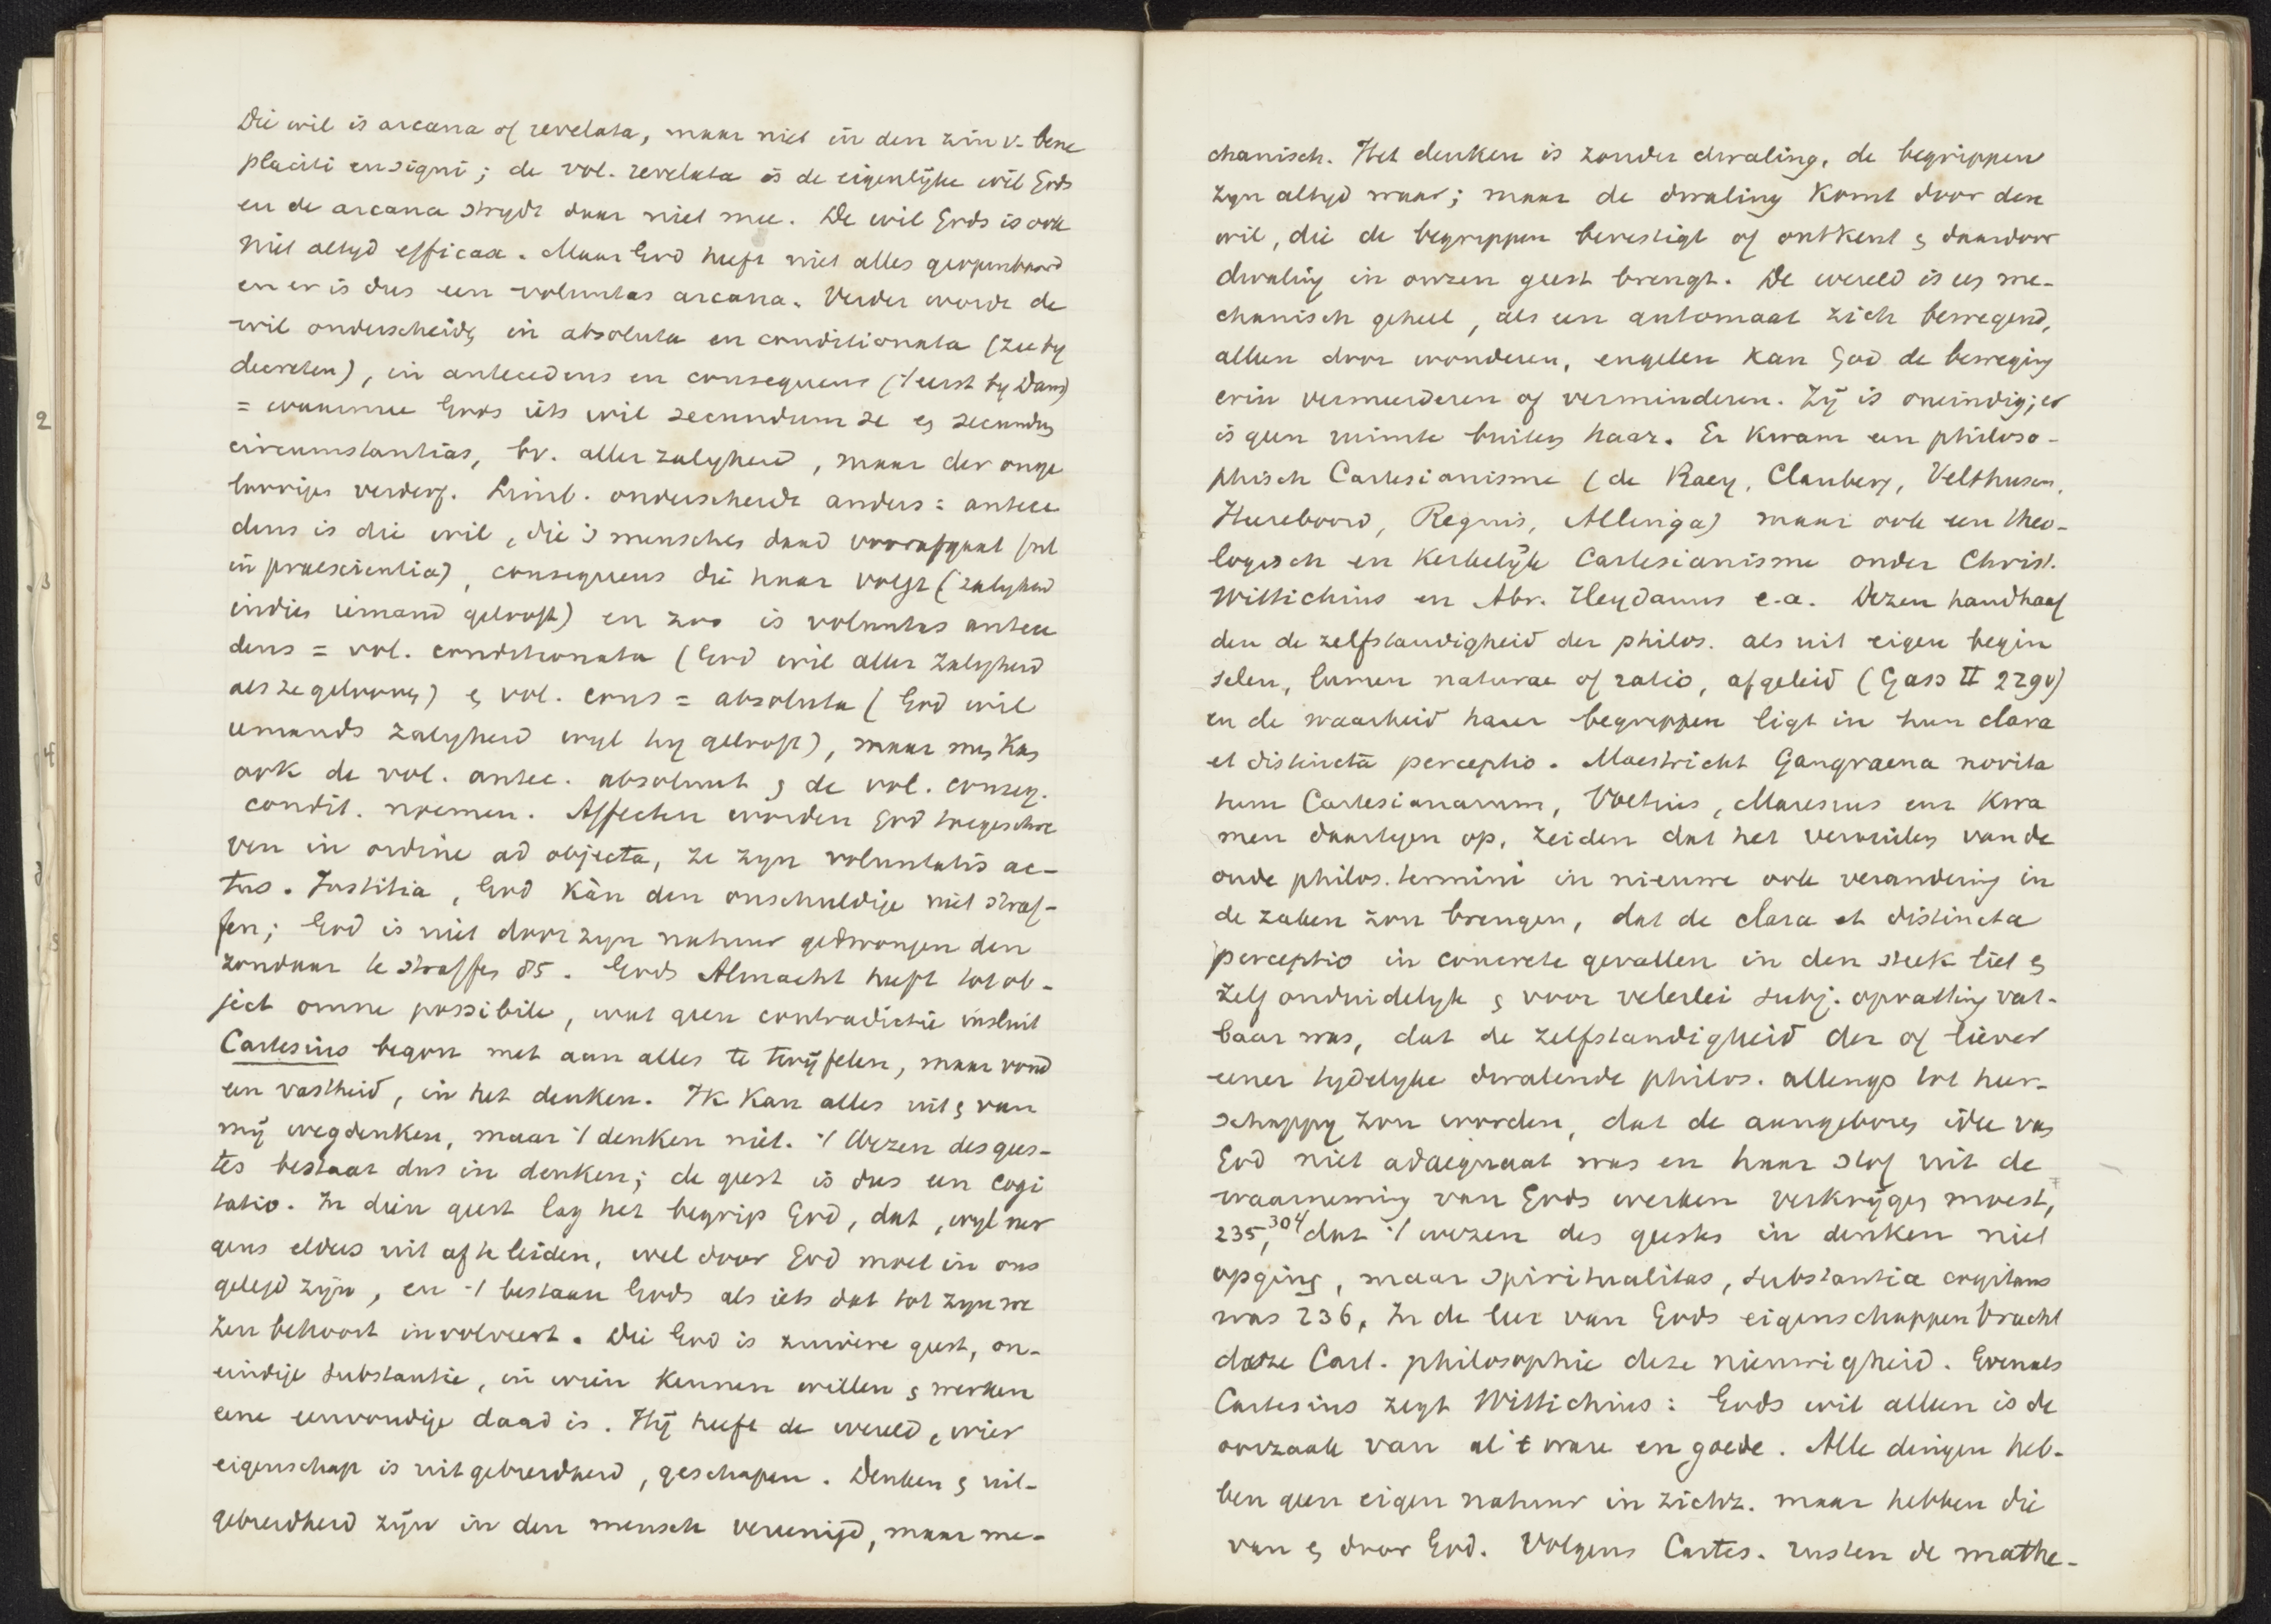 Die wil is arcana of revelata, maar niet in den zin v. bene
placiti en signi; de vol. revelata is de eigenlijke wil Gods
en de arcana strydt daar niet mee. De wil Gods is ook
niet altyd efficax. Maar God heeft niet alles geopenbaard
en er is dus een voluntas arcana. Verder wordt de
wil onderscheidn in absoluta en conditionata (zie by
decreten), in antecedens en consequens (’t eerst by Dam)
= waarmee God iets wil secundum se en secundum
circumstantias, bv. aller zaligheid, maar der onge
loovigen verderf. Limb. onderscheidt anders: antece
dens is die wil, die ’s menschen daad voorafgaat (ook
in praescientia), consequens die haar volgt (zaligheid
indien iemand gelooft) en zoo is voluntas antece
dens = vol. conditionata (God wil aller zaligheid
als ze gelooven) en vol. cons = absoluta (God wil
iemands zaligheid wyl hy gelooft), maar men kan
ook de vol. antec. absoluut en de vol. conseq.
condit. noemen. Affecten worden God toegeschre
ven in ordine ad objecta, ze zyn voluntatis ac-
tus. Justitia, God kàn den onschuldige niet straf-
fen; God is niet door zyn natuur gedwongen den
zondaar te straffen 85. Gods Almacht heeft tot ob-
ject omne possibile, wat geen contradictie insluit
Cartesius begon met aan alles te twijfelen, maar vond
een vastheid, in het denken. Ik kan alles uit en van
mij wegdenken, maar ’t denken niet. ’t Wezen des gees-
tes bestaat dus in denken; de geest is dus een cogi
tatio. In dien geest lag het begrip God, dat, wyl ner
gens elders uit af te leiden, wel door God moet in ons
gelegd zijn, en ’t bestaan Gods als iets dat tot zyn we
zen behoort involveert. Die God is zuivere geest, on-
eindige substantie, in wien kennen willen en werken
eene eenvoudige daad is. Hij heeft de wereld, wier
eigenschap is uitgebreidheid, geschapen. Denken en uit-
gebreidheid zijn in den mensch vereenigd, maar me-
chanisch. Het denken is zonder dwaling, de begrippen
zyn altyd waar; maar de dwaling komt door den
wil, die de begrippen bevestigt of ontkent en daardoor
dwaling in onzen geest brengt. De wereld is een me-
chanisch geheel, als een automaat zich bewegend,
alleen door wonderen, engelen kan God de beweging
erin vermeerderen of verminderen. Zij is oneindig; er
is geen ruimte buiten haar. Er kwam een philoso-
phisch Cartesianisme (de Raey, Clauberg, Velthusen,
Heereboord, Regius, Allinga) maar ook een theo-
logisch en kerkelijk Cartesianisme onder Christ.
Wittichius en Abr. Heydanus e.a. Dezen handhaaf
den de zelfstandigheid der philos. als uit eigen begin
selen, lumen naturae of ratio, afgeleid (Gass II 229v)
en de waarheid harer begrippen ligt in hun clara
et distincta perceptio. Maestricht Gangraena novita
tum Cartesianarum, Voetius, Maresius enz kwa
men daartegen op, zeiden dat het verruilen van de
oude philos. termini in nieuwe ook verandering in
de zaken zou brengen, dat de clara et distincta
perceptio in concrete gevallen in den steek liet en
zelf onduidelyk en voor velerlei subj. opvatting vat-
baar was, dat de zelfstandigheid der of liever
eener tydelyke dwalende philos. allengs tot heer-
schappy zou worden, dat de aangeboren idee van
God niet adaequaat was en haar stof uit de
waarneming van Gods werken verkrijgen moest,
235, 304 dat ’t wezen des geestes in denken niet
opging, maar spiritualitas, substantia cogitans
was 236. In de leer van Gods eigenschappen bracht
deze Cart. philosophie deze nieuwigheid. Evenals
Cartesius zegt Wittichius: Gods wil alleen is de
oorzaak van al ’t ware en goede. Alle dingen heb-
ben geen eigen natuur in zichz. maar hebben die
van en door God. Volgens Cartes. rusten de mathe-